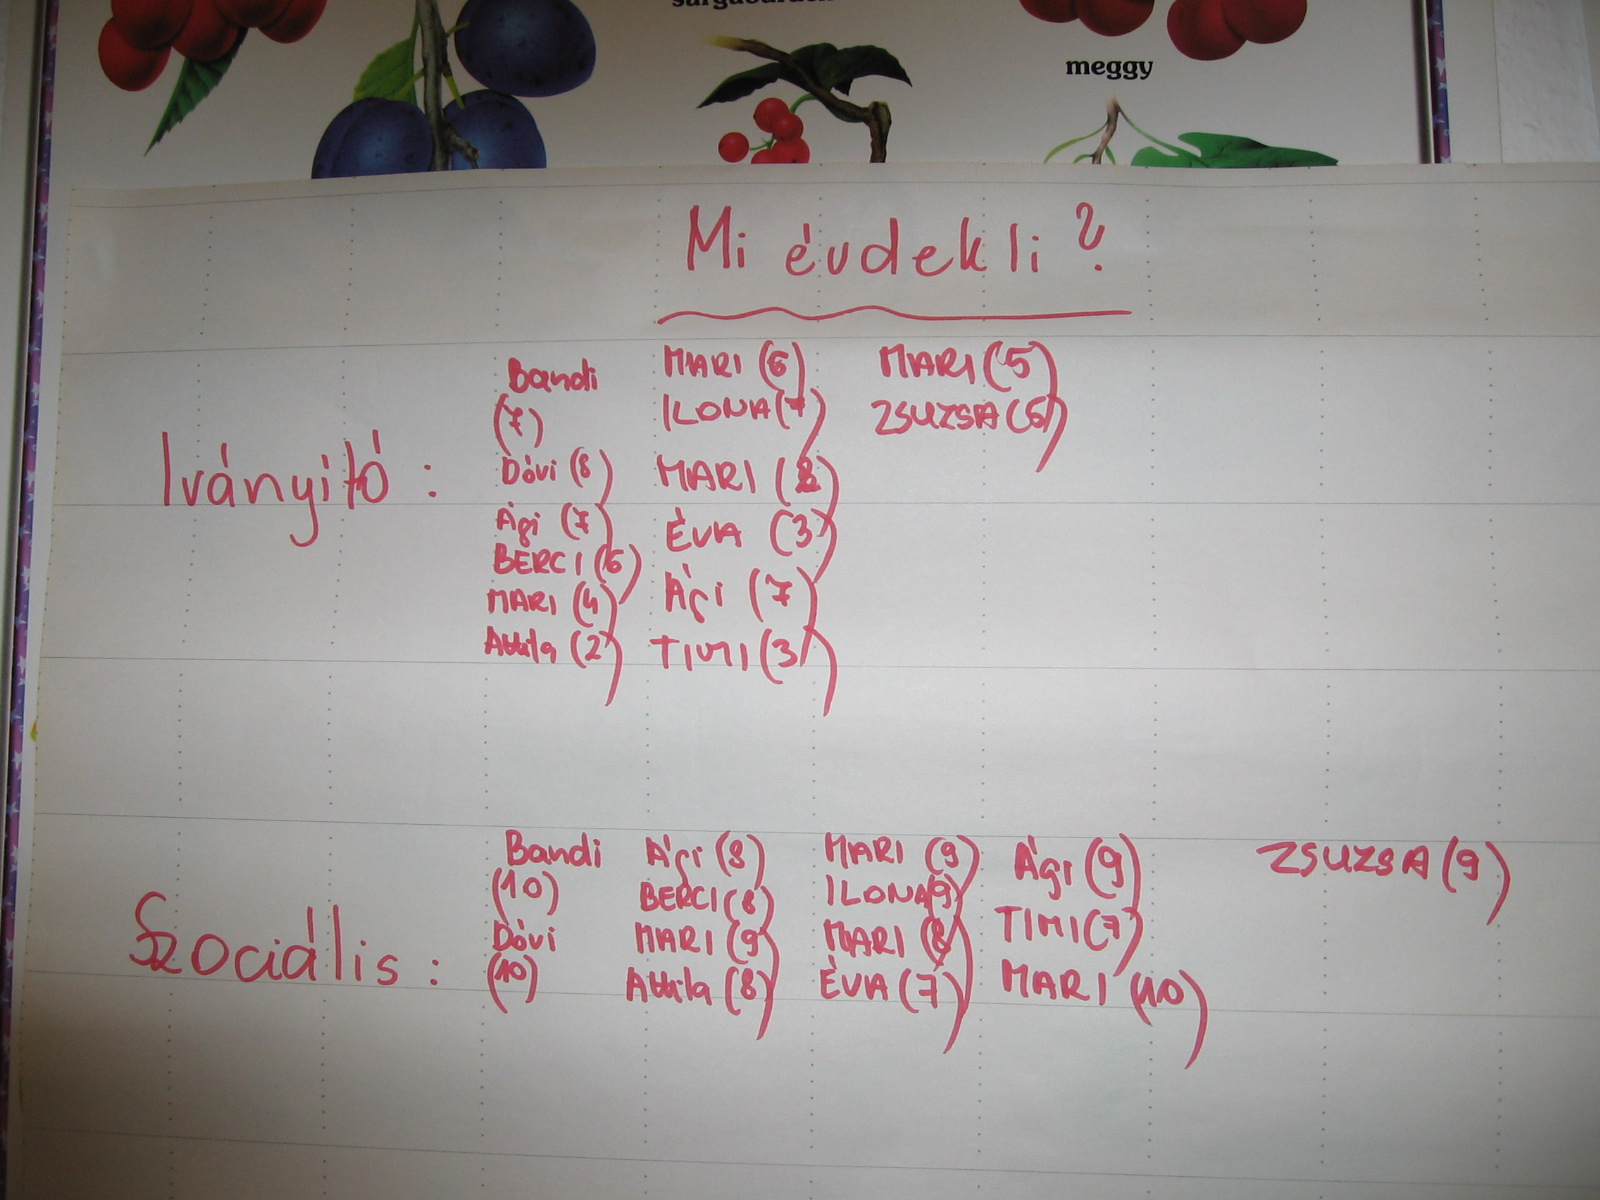 meggy
Mi érdekli?
Irányító:
Bandi
(7)
Dóvi (8)
Ági (7)
BERCI (6)
MARI (4)
Attila (2)
MARI (6)
ILONA (7)
MARI
ÉVA (3)
Ági (7)
TIMI (3)
MARI (5)
ZSUZSA (6)
Szociális:
Bandi
(10)
Dóvi
(10)
Ági (8)
BERCI (8)
MARI (9)
Attila (8)
MARI (9)
ILONA (9)
MARI (8)
ÉVA (7)
Ági (9)
TIMI (7)
MARI (10)
ZSUZSA (9)